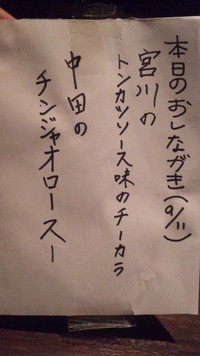 本日のおしながき(9/11)
宮川の
トンカツソース味のチーカラ
中田の
チンジャオロースー